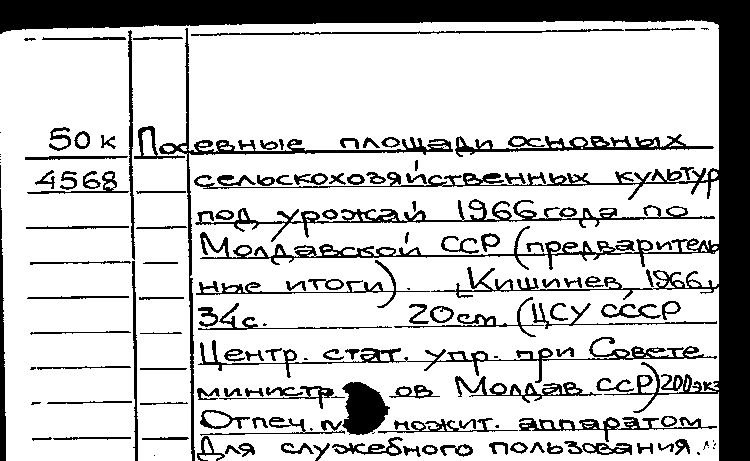 50к Посевные площади основных
4568 сельскохозяйственных культур
под урожай 1966 года по
Молдавской ССР (предваритель
ные итоги). [Кишинев, 1966]
34с. 20см. (ЦСУ СССР
Центр. стат. упр. при Совете
министр ов Молдав. ССР) 200экз
Отпеч. ножит. аппаратом
Для служебного пользования.